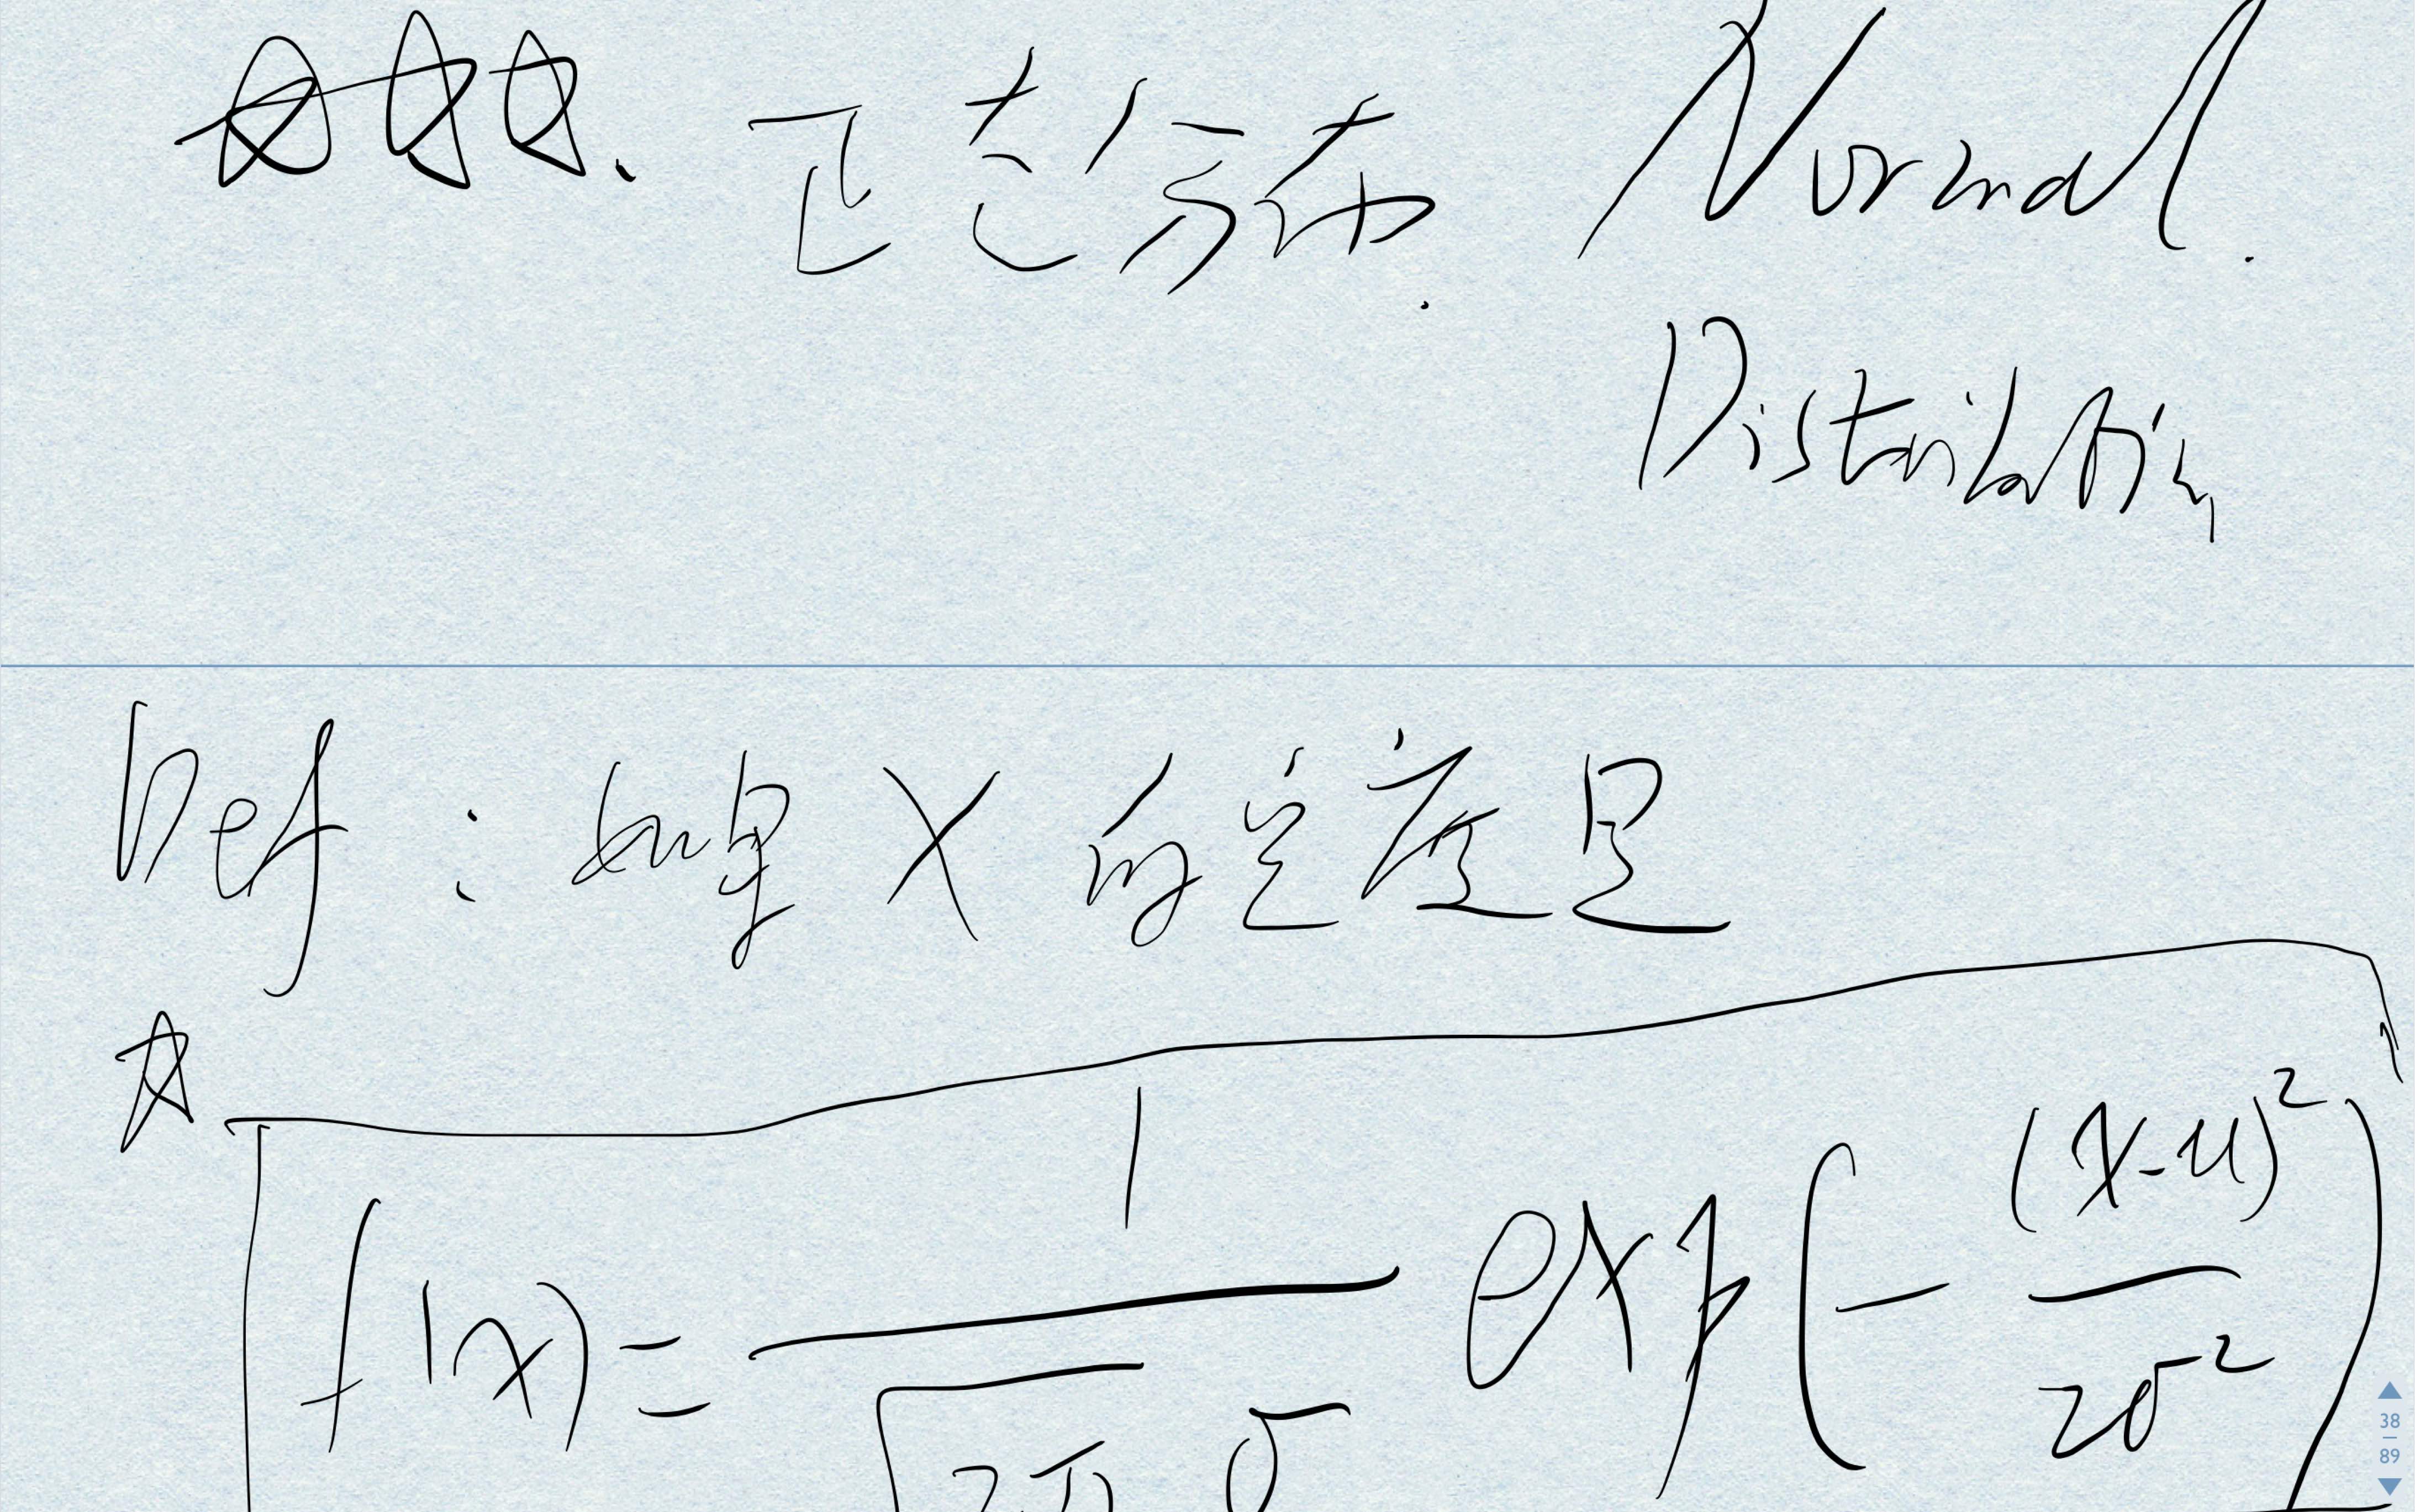 ☆☆☆、正态分布. Normal.
Distribution
Def: 如果 X 的密度是
☆ f(x) = \frac{1}{\sqrt{2π} σ} exp(-\frac{(x-μ)^2}{2σ^2})
38
89